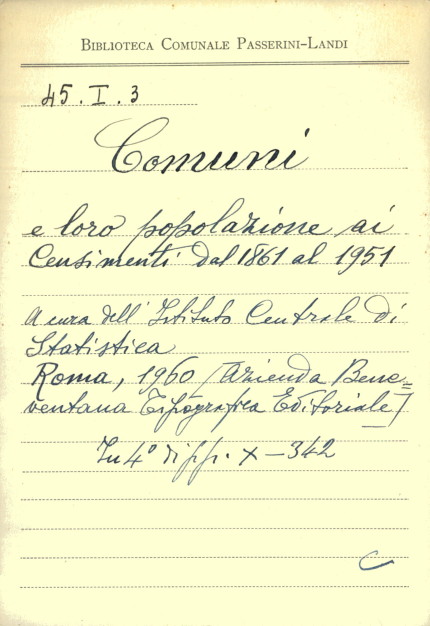 BIBLIOTECA COMUNALE PASSERINI-LANDI
45. I. 3
Comuni
e loro popolazione ai
Censimenti dal 1861 al 1951
A cura dell'Istituto Centrale di
Statistica
Roma, 1960 [Azienda Bene=
ventana Tipografica Editoriale]
In 4° di pp. X-342
C